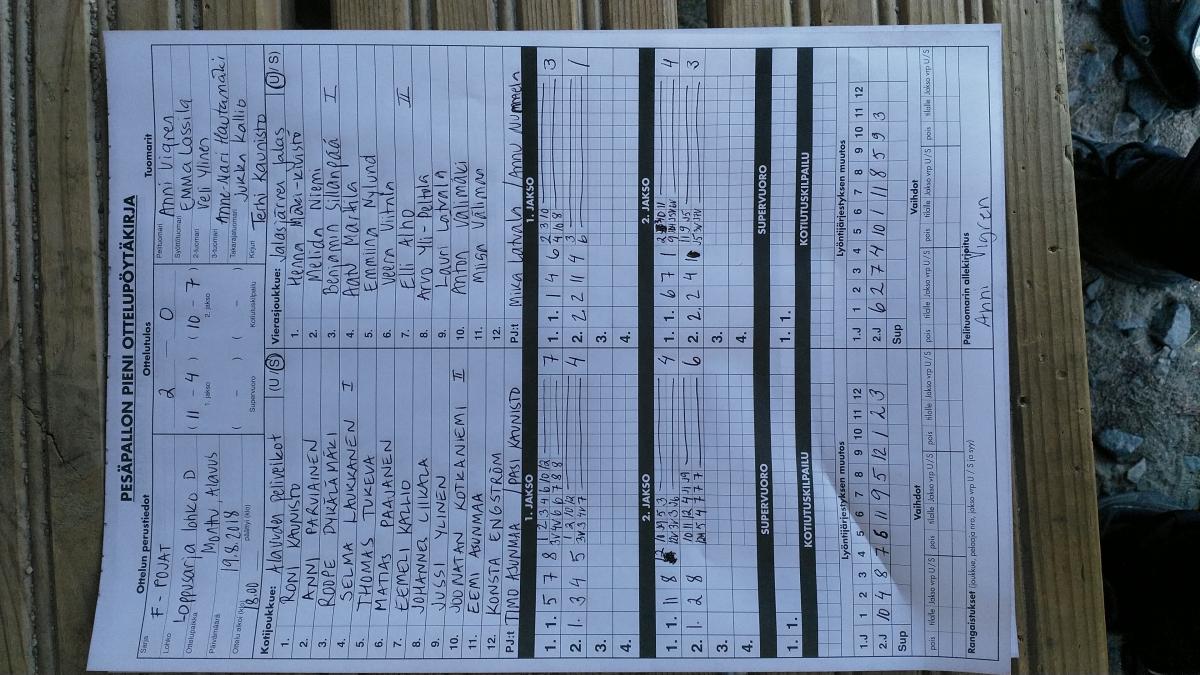 PESÄPALLON PIENI OTTELUPÖYTÄKIRJA
Ottelun perustiedot
Sarja F-POJAT
Lohko Loppusarja lohko D
Ottelupaikka Monttu Alavus
Päivämäärä 19.8.2018
Ottelu alkoi (klo) 18.00 päättyi (klo)
Ottelutulos
2 - 0
( 11 - 4 ) ( 10 - 7 )
1. jakso 2. jakso
( - ) ( - )
Supervuoro Kotiutuskilpailu
Tuomarit
Pelituomari Anni Vigren
Syöttötuomari Emma Lassila
2-tuomari Veli Ylinen
3-tuomari Anne-Mari Hautamäki
Takarajatuomari Jukka Kallio
Kirjuri Terhi Kaunisto
Kotijoukkue: Alavuden Peliveikot (U/S)
1. RONI KAUNISTO
2. ANNI PARVIAINEN
3. ROOPE PYKÄLÄMÄKI
4. SELMA LAUKKANEN I
5. THOMAS TUKEVA
6. MATIAS PAAJANEN
7. EEMELI KALLIO
8. JOHANNES LIIKALA
9. JUSSI YLINEN
10. JOONATAN KOTKANIEMI II
11. EEMI ASUNMAA
12. KONSTA ENGSTRÖM
PJ:t TIMO ASUNMAA / PASI KAUNISTO
Vierasjoukkue: Jalasjärven Jalas (U/S)
1. Henna Mäki-Kivistö
2. Melida Niemi
3. Benjamin Sillanpää I
4. Aatu Marttila
5. Emmiina Nylund
6. Veera Viitala
7. Elli Alho II
8. Arvo Yli-Peltola
9. Lauri Loivala
10. Anton Välimäki
11. Miisa Välimaa
12.
PJ:t Mika Latvala / Annu Nummela
1. JAKSO
1. 1. 5 7 8 7
2. 1. 3 4 5 4
3.
4.
1. JAKSO
1. 1. 1 4 6 3
2. 2 2 11 4 1
3.
4.
2. JAKSO
1. 1. 11 8 4
2. 1. 2 8 6
3.
4.
2. JAKSO
1. 1. 6 7 1 4
2. 2. 2 4 3
3.
4.
SUPERVUORO
1. 1.
SUPERVUORO
1. 1.
KOTIUTUSKILPAILU
KOTIUTUSKILPAILU
Lyöntijärjestyksen muutos
1 2 3 4 5 6 7 8 9 10 11 12
1.J
2.J 10 4 8 7 6 11 9 5 12 1 2 3
Sup
Lyöntijärjestyksen muutos
1 2 3 4 5 6 7 8 9 10 11 12
1.J
2.J 6 2 7 4 10 1 11 8 5 9 3
Sup
Vaihdot
pois tilalle Jakso vrp U / S pois tilalle Jakso vrp U / S pois tilalle Jakso vrp U / S
Vaihdot
pois tilalle Jakso vrp U / S pois tilalle Jakso vrp U / S pois tilalle Jakso vrp U / S
Rangaistukset (joukkue, pelaaja nro, jakso vrp U / S ja syy)
Pelituomarin allekirjoitus
Anni Vigren